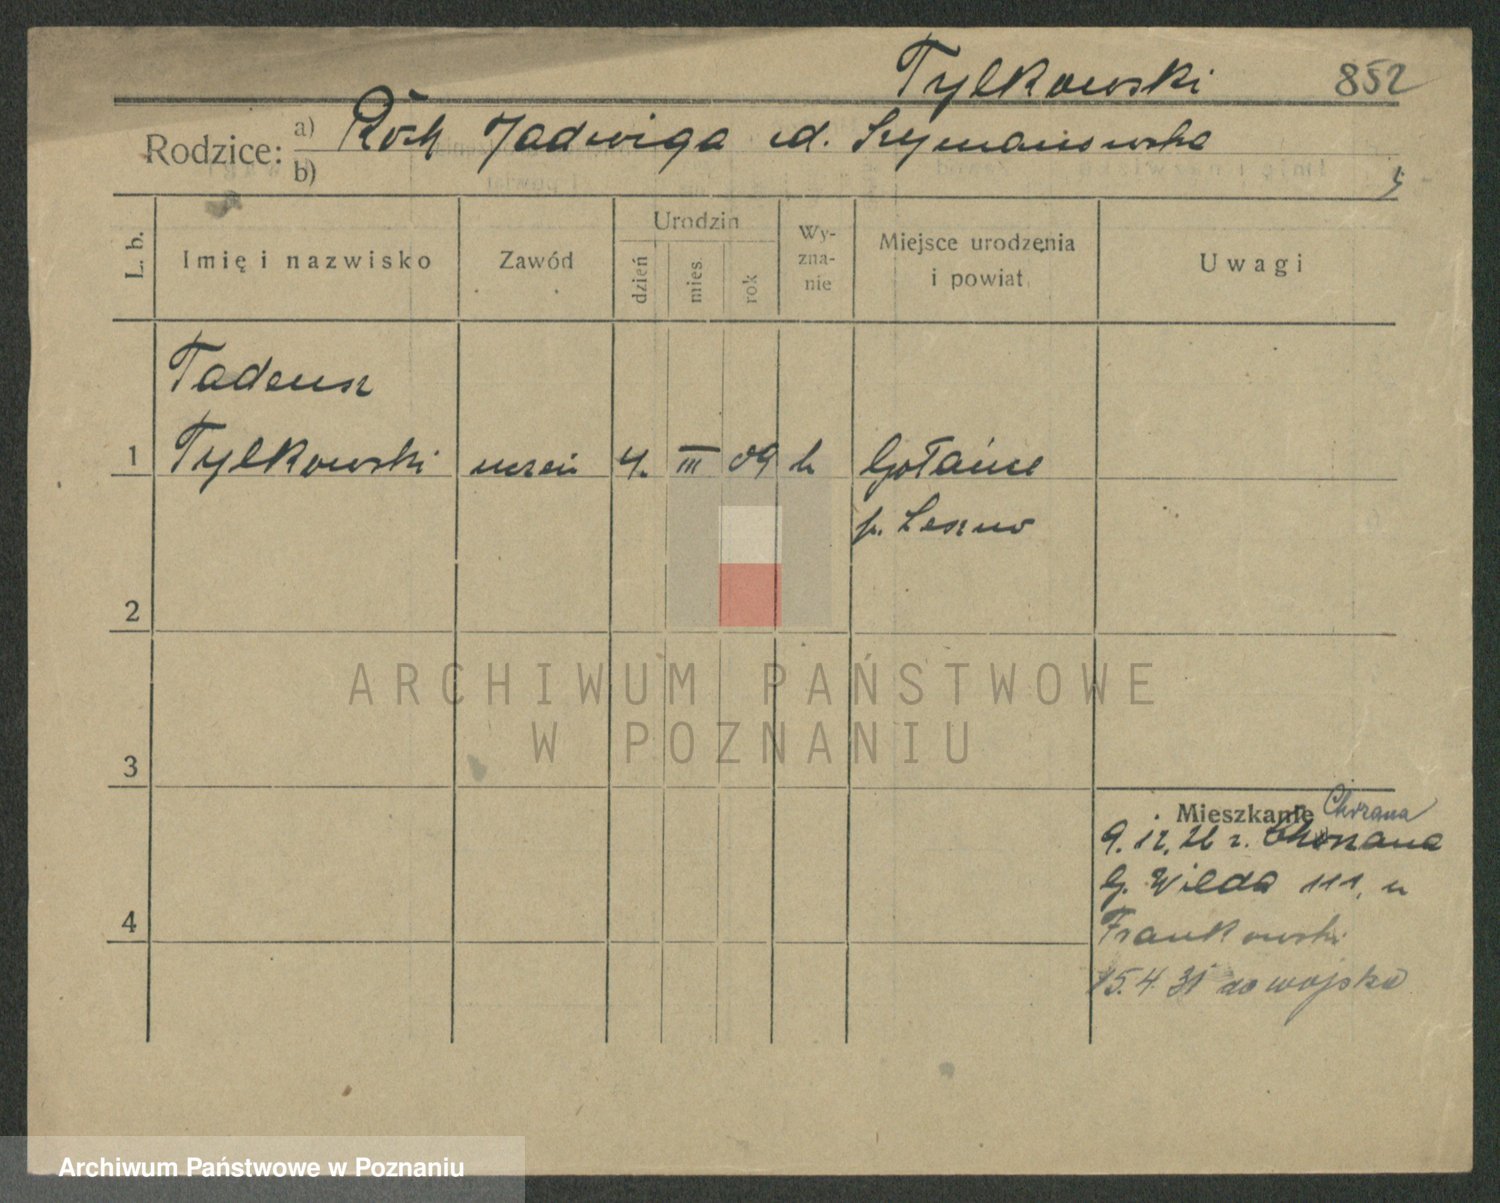 Tylkowski 852
Rodzice: a) Roch Jadwiga d. Szymanowska
b)
L. b.
Imię i nazwisko
Zawód
Urodzin
dzień
mies.
rok
Wy-
zna-
nie
Miejsce urodzenia
i powiat
Uwagi
Tadeusz
1 Tylkowski uczeń 4. III 09 k
p. Leszno
2
ARCHIWUM PAŃSTWOWE
W POZNANIU
3
Mieszkanie
9. 12. 26 r.
G. Wilda 111, u
Frankowski
4
15.4.31 do wojska
Archiwum Państwowe w Poznaniu